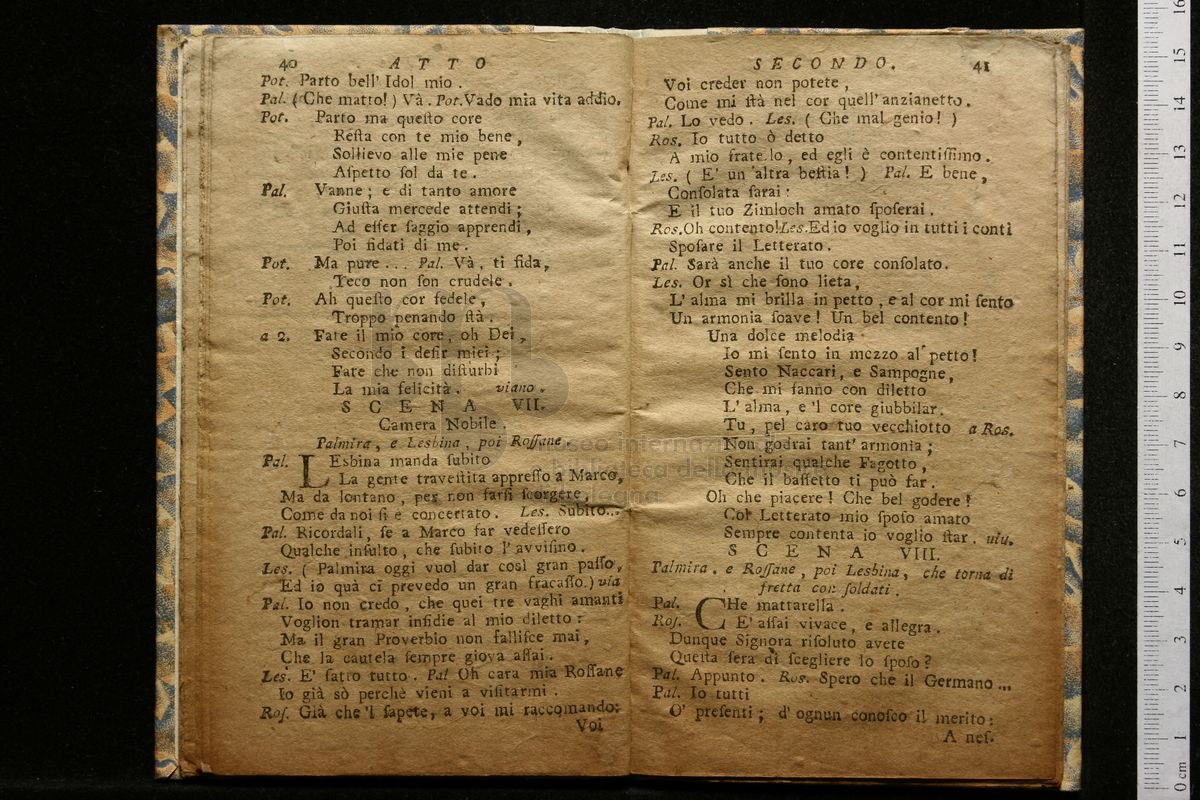 40 ATTO
Pot. Parto bell' Idol mio.
Pal. (Che matto!) Và. Pot. Vado mia vita addio.
Pot. Parto ma queſto core
Reſta con te mio bene,
Sollievo alle mie pene
Aſpetto ſol da te.
Pal. Vanne; e di tanto amore
Giuſta mercede attendi;
Ad eſſer ſaggio apprendi,
Poi fidati di me.
Pot. Ma pure... Pal. Và, ti fida,
Teco non ſon crudele.
Pot. Ah queſto cor fedele,
Troppo penando ſtà.
a 2. Fate il mio core, oh Dei,
Secondo i deſir miei;
Fate che non diſturbi
La mia felicità. viano.
SCENA VII.
Camera Nobile.
Palmira, e Lesbina, poi Roſſane.
Pal. LEsbina manda ſubito
La gente traveſtita appreſſo a Marco,
Ma da lontano, per non farſi ſcorgere,
Come da noi ſi è concertato. Les. Subito...
Pal. Ricordali, ſe a Marco far vedeſſero
Qualche inſulto, che ſubito l'avviſino.
Les. (Palmira oggi vuol dar così gran paſſo,
Ed io quà ci prevedo un gran fracaſſo.) via
Pal. Io non credo, che quei tre vaghi amanti
Voglion tramar inſidie al mio diletto:
Ma il gran Proverbio non falliſce mai,
Che la cautela ſempre giova aſſai.
Les. E' fatto tutto. Pal Oh cara mia Roſſane
Io già sò perchè vieni a viſitarmi.
Roſ. Già che 'l ſapete, a voi mi raccomando:
Voi
SECONDO. 41
Voi creder non potete,
Come mi ſtà nel cor quell' anzianetto.
Pal. Lo vedo. Les. (Che mal genio!)
Ros. Io tutto ò detto
A mio fratello, ed egli è contentiſſimo.
Les. (E' un altra beſtia!) Pal. E bene,
Conſolata ſarai:
E il tuo Zimloch amato ſpoſerai.
Ros. Oh contento! Les. Ed io voglio in tutti i conti
Spoſare il Letterato.
Pal. Sarà anche il tuo core conſolato.
Les. Or sì che ſono lieta,
L' alma mi brilla in petto, e al cor mi ſento
Un armonia ſoave! Un bel contento!
Una dolce melodia
Io mi ſento in mezzo al petto!
Sento Naccari, e Sampogne,
Che mi fanno con diletto
L' alma, e 'l core giubbilar.
Tu, pel caro tuo vecchiotto a Ros.
Non godrai tant' armonia;
Sentirai qualche Fagotto,
Che il baſſetto ti può far.
Oh che piacere! Che bel godere!
Col Letterato mio ſpoſo amato
Sempre contenta io voglio ſtar. via.
SCENA VIII.
Palmira, e Roſſane, poi Lesbina, che torna di
fretta con ſoldati.
Pal. CHe mattarella.
Roſ. E' aſſai vivace, e allegra.
Dunque Signora riſoluto avete
Queſta ſera di ſcegliere lo ſpoſo?
Pal. Appunto. Ros. Spero che il Germano...
Pal. Io tutti
O' preſenti; d'ognun conoſco il merito:
A neſ.